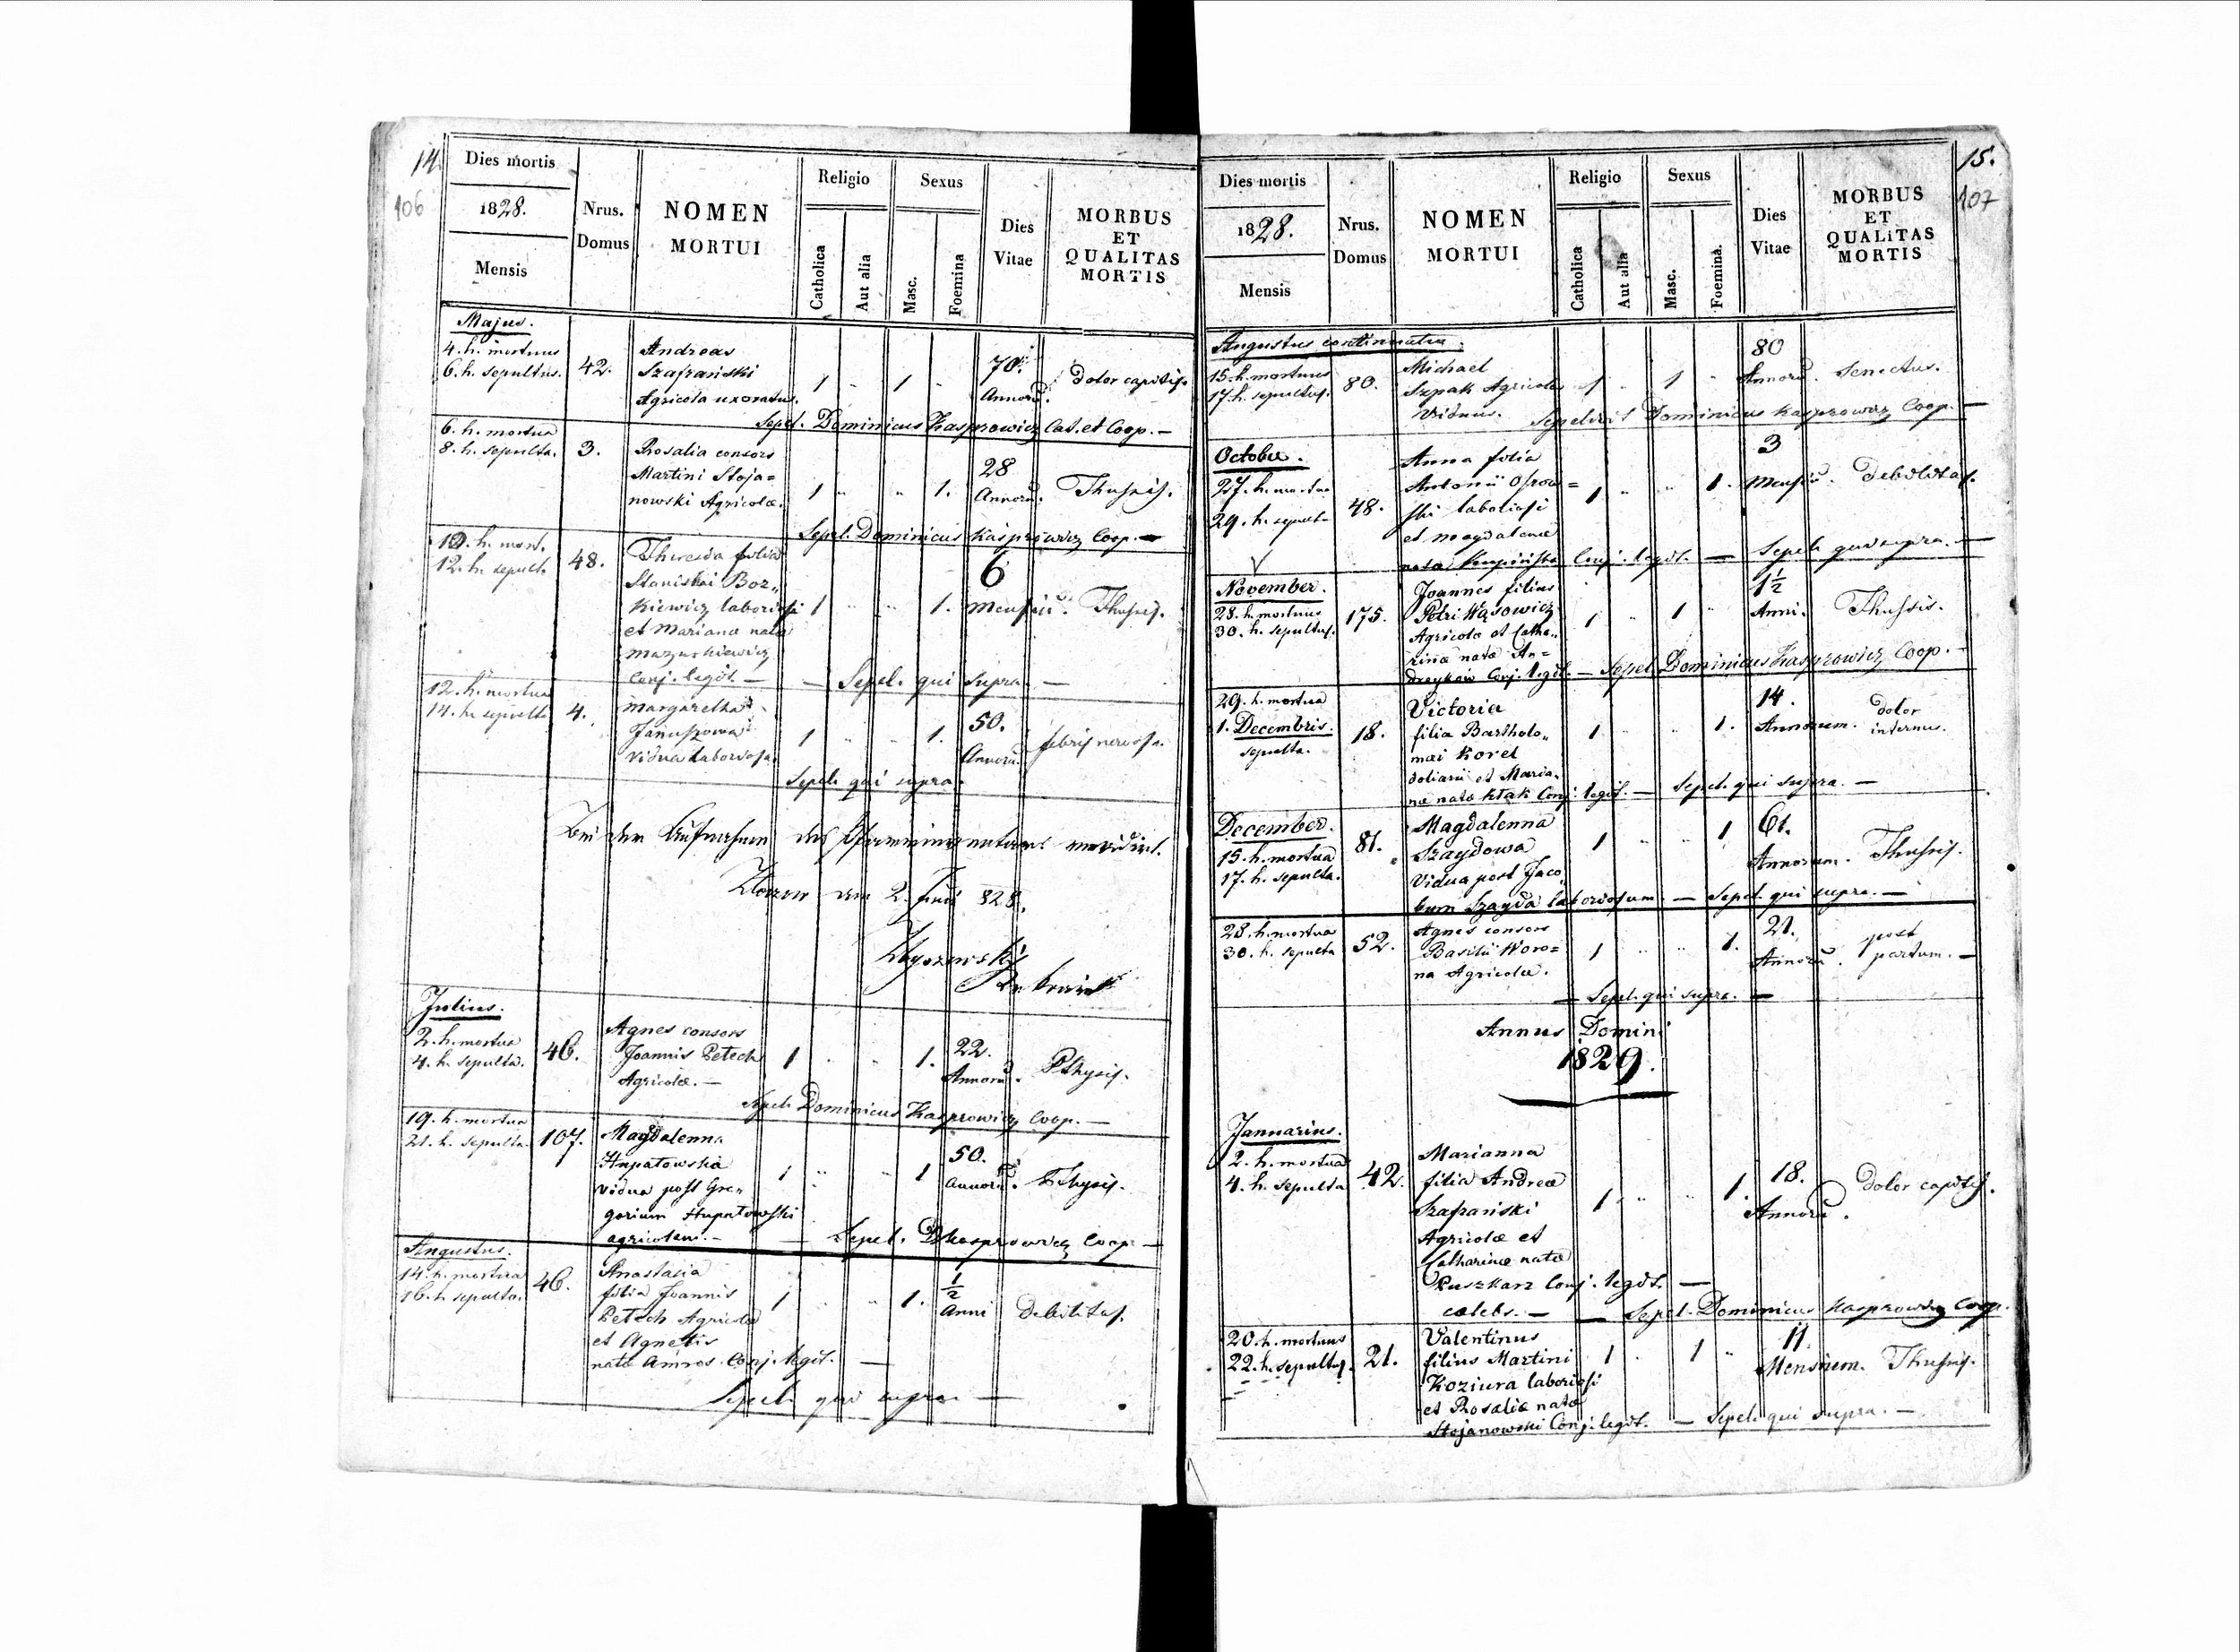 14.
106
Dies mortis
1828.
Mensis
Nrus.
Domus
NOMEN
MORTUI
Religio
Catholica
Aut alia
Sexus
Masc.
Foemina
Dies
Vitae
MORBUS
ET
QUALITAS
MORTIS
Majus.
4. h. mortuus
6. h. sepultus.
42.
Andreas
Szafrański
Agricola uxoratus.
1 " 1 "
70.
Annorū.
dolor capitis.
Sepel. Dominicus Kasprowicz Cat. et Coop. —
6. h. mortua
8. h. sepulta.
3.
Rosalia consors
Martini Stoja=
nowski Agricolæ.
1 " " 1.
28
Annorū.
Thussis.
Sepel. Dominicus Kasprowicz Coop. —
10. h. mort.
12. h. sepult.
48.
Theresia filia
Stanislai Boz„
kiewicz laboriosi
et Marianæ natæ
Mazurkiewicz
Conj. legit. —
1 " " 1.
6
Mensiū.
Thussis.
— Sepel. qui supra. —
12. h. mortua
14. h. sepulta
4.
Margaretha
Januszowa
Vidua laboriosa.
1 " " 1.
50.
Annorū.
febris nervosa.
Sepel. qui supra.
Bei der Aufnahme des Pfarrinventars
am 2. Juni 828.
Julius.
2. h. mortua
4. h. sepulta.
46.
Agnes consors
Joannis Petech
Agricolæ. —
1 " " 1.
22.
Annorū.
Pthysis.
Sepel. Dominicus Kasprowicz Coop. —
19. h. mortua
21. h. sepulta
107.
Magdalenna
Hupatowska
vidua post Gre„
gorium Hupatowski
agricolam. —
1 " " 1
50.
Annorū.
Pthysis.
— Sepel. D Kasprowicz Coop —
Augustus.
14. h. mortua
16. h. sepulta.
46.
Anastasia
filia Joannis
Petech Agricolæ
et Agnetis
natæ Amros. Conj. legit. —
1 " " 1.
1/2
Anni
Debilitas.
Sepel. qui supra —
15.
107
Dies mortis
1828.
Mensis
Nrus.
Domus
NOMEN
MORTUI
Religio
Catholica
Aut alia
Sexus
Masc.
Foemina.
Dies
Vitae
MORBUS
ET
QUALITAS
MORTIS
Augustus continuatur.
15. h. mortuus
17. h. sepultus.
80.
Michael
Szpak Agricola
Viduus.
1 " 1 "
80
Annorū.
Senectus.
Sepelivit Dominicus Kasprowicz Coop. —
October.
27. h. mortua
29. h. sepulta
48.
Anna filia
Antonii
laboriosi
et Magdalenæ
natæ Conj. legit. —
1 " " 1.
3
Mensiū.
Debilitas.
Sepel. qui supra. —
November.
28. h. mortuus
30. h. sepultus.
175.
Joannes filius
Petri Wąsowicz
Agricolæ et Catha„
rinæ natæ An=
dreyków Conj. legit.
1 " 1 "
1 1/2
Anni.
Thussis.
— Sepel. Dominicus Kasprowicz Coop. —
29. h. mortua
1. Decembris.
sepulta.
18.
Victoria
filia Bartholo„
mæi Korel
doliarii et Maria„
næ natæ Ktak Conj. legit. —
1 " " 1.
14.
Annorum.
dolor
internus.
Sepel. qui supra. —
December.
15. h. mortua
17. h. sepulta.
81.
Magdalenna
Szaydowa
Vidua post Jaco„
bum Szayda laboriosum —
1 " " 1
61.
Annorum.
Thussis.
Sepel. qui supra. —
28. h. mortua
30. h. sepulta
52.
Agnes consors
Basilii Woro=
na Agricolæ.
1 " " 1.
21.
Annorū.
post
partum. —
— Sepel. qui supra. —
Annus Domini
1829.
Januarius.
2. h. mortua
4. h. sepulta
42.
Marianna
filia Andreæ
Szafrański
Agricolæ et
Catharinæ natæ
Puszkarz Conj. legit. —
cælebs. —
1 " " 1.
18.
Annorū.
Dolor capitis.
— Sepel. Dominicus Kasprowicz Coop.
20. h. mortuus
22. h. sepultus.
21.
Valentinus
filius Martini
Koziura laboriosi
et Rosaliæ natæ
Stojanowski Conj. legit.
1 " 1 "
11.
Mensium.
Thussis.
— Sepel. qui supra. —